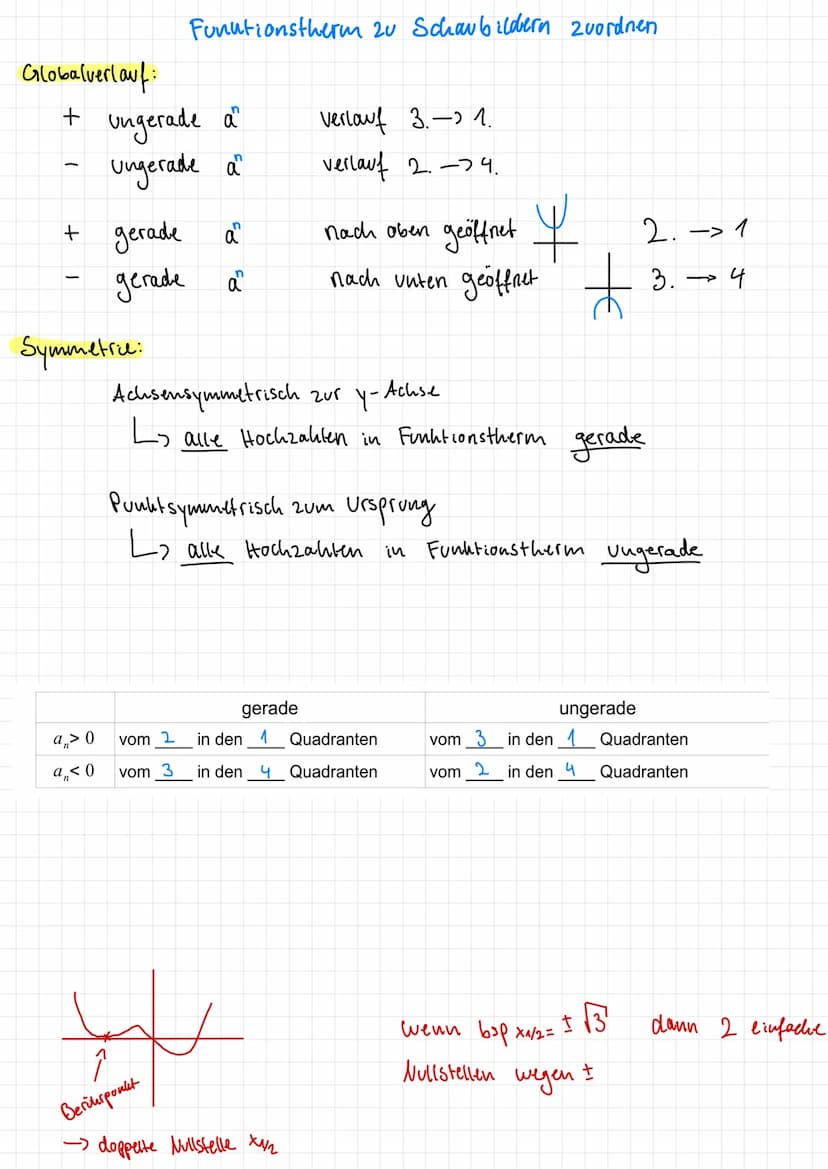 Funktionstherm zu Schaubildern zuordnen
Globalverlauf:
+ ungerade aⁿ verlauf 3. → 1.
- ungerade aⁿ verlauf 2. → 4.
+ gerade aⁿ nach oben geöffnet 2. → 1
- gerade aⁿ nach unten geöffnet 3. → 4
Symmetrie:
Achsensymmetrisch zur y-Achse
↳ alle Hochzahlen in Funktionstherm gerade
Punktsymmetrisch zum Ursprung
↳ alle Hochzahlen in Funktionstherm ungerade
gerade ungerade
aₙ > 0 vom 2 in den 1 Quadranten vom 3 in den 1 Quadranten
aₙ < 0 vom 3 in den 4 Quadranten vom 2 in den 4 Quadranten
wenn bsp x₁/₂ = ± √3 dann 2 einfache
Nullstellen wegen ±
Berührpunkt
→ doppelte Nullstelle x₁/₂